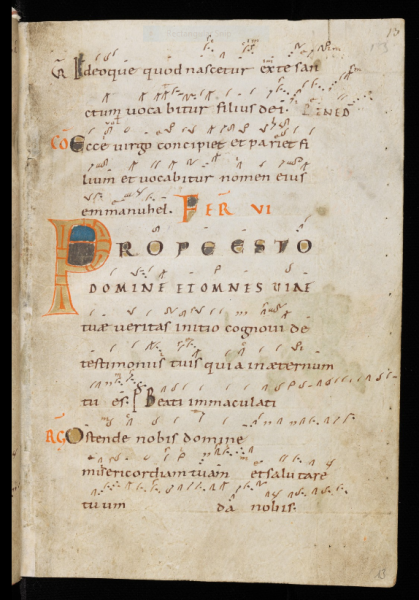 Ꞃ Ideoque quod nascetur ex te san
ctum vocabitur filius dei.
CO Ecce virgo concipiet et pariet fi
lium et vocabitur nomen eius
emmanuhel. FER VI
PROPE ESTO
DOMINE ET OMNES VIAE
tuæ veritas initio cognovi de
testimoniis tuis quia in æternum
tu es. Ps Beati immaculati
RG Ostende nobis domine
misericordiam tuam et salutare
tuum da nobis.
13